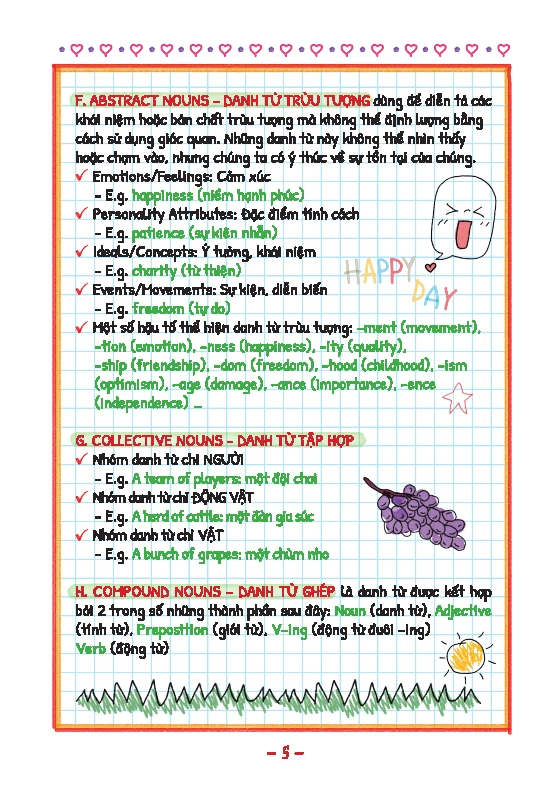 F. ABSTRACT NOUNS – DANH TỪ TRỪU TƯỢNG dùng để diễn tả các
khái niệm hoặc bản chất trừu tượng mà không thể định lượng bằng
cách sử dụng giác quan. Những danh từ này không thể nhìn thấy
hoặc chạm vào, nhưng chúng ta có ý thức về sự tồn tại của chúng.
✓ Emotions/Feelings: Cảm xúc
– E.g. happiness (niềm hạnh phúc)
✓ Personality Attributes: Đặc điểm tính cách
– E.g. patience (sự kiên nhẫn)
✓ Ideals/Concepts: Ý tưởng, khái niệm
– E.g. charity (từ thiện)
HAPPY
DAY
✓ Events/Movements: Sự kiện, diễn biến
– E.g. freedom (tự do)
✓ Một số hậu tố thể hiện danh từ trừu tượng: –ment (movement),
–tion (emotion), –ness (happiness), –ity (quality),
–ship (friendship), –dom (freedom), –hood (childhood), –ism
(optimism), –age (damage), –ance (importance), –ence
(independence) ...
G. COLLECTIVE NOUNS – DANH TỪ TẬP HỢP
✓ Nhóm danh từ chỉ NGƯỜI
– E.g. A team of players: một đội chơi
✓ Nhóm danh từ chỉ ĐỘNG VẬT
– E.g. A herd of cattle: một đàn gia súc
✓ Nhóm danh từ chỉ VẬT
– E.g. A bunch of grapes: một chùm nho
H. COMPOUND NOUNS – DANH TỪ GHÉP là danh từ được kết hợp
bởi 2 trong số những thành phần sau đây: Noun (danh từ), Adjective
(tính từ), Preposition (giới từ), V–ing (động từ đuôi –ing)
Verb (động từ)
– 5 –